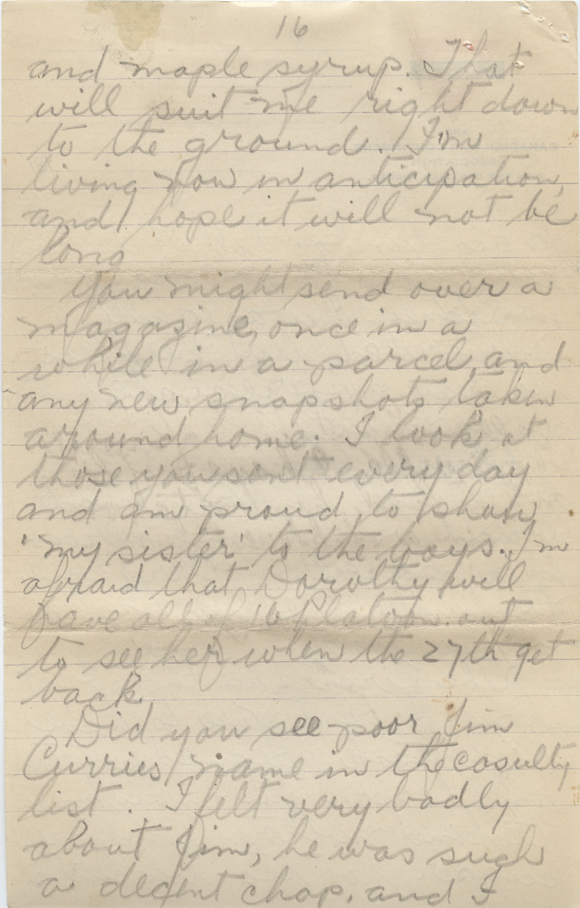 16
and maple syrup. That
will suit me right down
to the ground. I'm
living now in anticipation,
and hope it will not be
long
You might send over a
magazine, once in a
while in a parcel, and
any new snapshots taken
around home. I look at
those you sent every day
and am proud to show
'my sister' to the boys. I'm
afraid that Dorothy will
have all of 16 Platoon out
to see her when the 27th get
back
Did you see poor Jim
Curries name in the casulty
list. I felt very badly
about Jim, he was such
a decent chap, and I